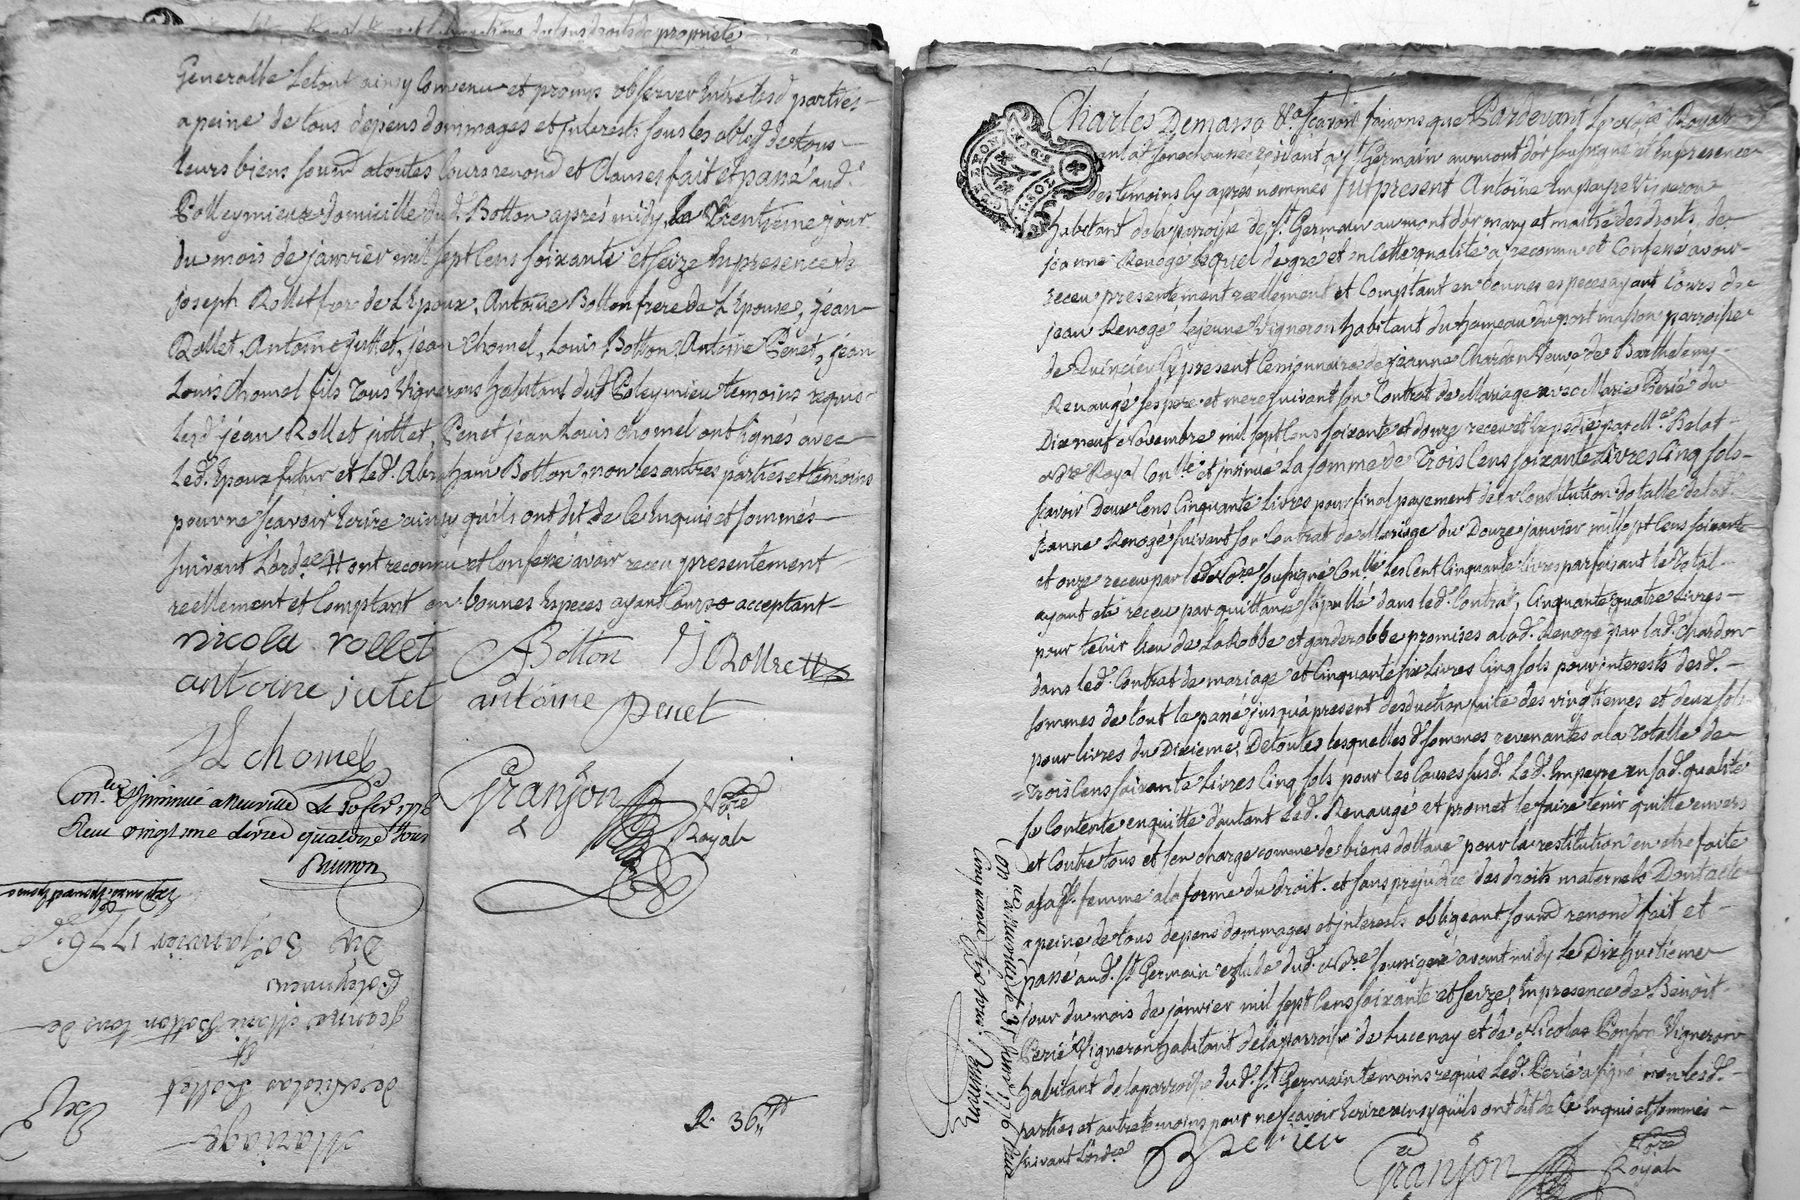 Generalle Le tout ainsy Convenu et promis observer Entre lesd parties
a peine de tous depens dommages et interests sous les oblig de tous
leurs biens soumd a toutes Cours renond et Clauses fait et passé aud.
Polleymieux domicille dud. Botton aprés midy, Le Trentieme jour
du mois de janvier mil sept Cens soixante et seize En presence de
joseph Rollet frere de L'Epoux, Antoine Botton frere de L'Epouse, jean
Rollet, Antoine juttet, jean Chomel, Louis Botton, Antoine Penet, jean
Louis Chomel fils Tous Vignerons habitant dud Poleymieu temoins requis
Lesd jean Rollet juttet, Penet jean Louis Chomel ont signés avec
Led. Epoux futur et Led. Abraham Botton, non les autres parties et temoins
pour ne sçavoir Ecrire ainsy qu'ils ont dit de Ce Enquis et sommés
suivant L'ordce # ont reconnu et Confessé avoir receu presentement
reellement et Comptant en bonnes Especes ayant Cours acceptant
nicola rollet ABotton Rollet
antoine jutet antoine penet
JL chomel
Granjon Nore
Royal
Con.lé Et insinué a Neuville Le 10 fev 1776
Reçu vingt une Livres quatorze sous
Brunon
Mariage
de Nicolas Rollet
et
jeanne Marie Botton tous de
Poleymieu
Du 30e janvier 1776
R. 36tt
GEN. LYON
Charles Demasso &a sçavoir faisons que Pardevant Le Nore Royal
en la sénéchaussée résidant a st Germain au mont d'or soussigné et En presence
des temoins Cy aprés nommés fut present Antoine Empeyre Vigneron
habitant de la parroisse de St Germain au mont d'or mary et maitre des droits de
jeanne Renoge Lequel de gré et en Cette qualité a reconnu et Confessé avoir
receu presentement reellement et Comptant en bonnes especes ayant Cours de
jean Renoge Lejeune Vigneron habitant du hameau du port masson parroisse
de Quincieu Cy present Cessionnaire de jeanne Chardon Veuve de Barthelemy
Renaugé ses pere et mere suivant son Contrat de Mariage avec Marie Perié du
Dix neuf Novembre mil sept Cens soixante et douze receu et Expedié par Me Balat
Nre Royal Con.llé et insinué La somme de Trois Cens soixante Livres Cinq sols
sçavoir Deux Cens Cinquante Livres pour final payement de la Constitution dotalle de lad.
jeanne Renogé suivant son Contrat de Mariage du Douze janvier mil sept Cens soixante
et onze receu par led Nore soussigné Con.llé les Cent Cinquante livres parfaisant le Total
ayant eté receu par quittance stipullé dans led. Contrat, Cinquante quatre Livres
pour tenir Lieu de La Robbe et garderobbe promises a lad. Renoge par lad. Chardon
dans led. Contrat de mariage et Cinquante six Livres Cinq sols pour interests desd.
sommes de tout le passé jusqu'a present desduction faite des vingtiemes et deux sols
pour livres du Dixieme, De toutes lesquelles d. sommes revenantes a la Totalle de
Trois Cens soixante Livres Cinq sols pour les Causes susd. Led. Empeyre en sad. qualité
se Contente en quitte d'autant led. Renaugé et promet le faire tenir quitte envers
et Contre tous et s'en charge comme de biens dottaux pour la restitution en etre faite
a sad. femme a la forme du droit. et sans prejudice des droits maternels Dont acte
a peine de tous depens dommages et interests obligeant soumd renond fait et
passé aud. St Germain etude dud. Nore soussigné avant midy Le Dix huitieme
jour du mois de janvier mil sept Cens soixante et seize, En presence de Benoit
Perié Vigneron habitant de la parroisse de Lucenay et de Nicolas Ponson Vigneron
habitant de la parroisse du d. St Germain temoins requis Led. Perié a signé non lesd.
parties et autre temoins pour ne sçavoir Ecrire ainsy qu'ils ont dit de Ce Enquis et sommés
suivant L'ordce
B Perieu Granjon Nore
Royal
Con.lé a Neuville Le 31 janv 1776 Reçu
Brunon